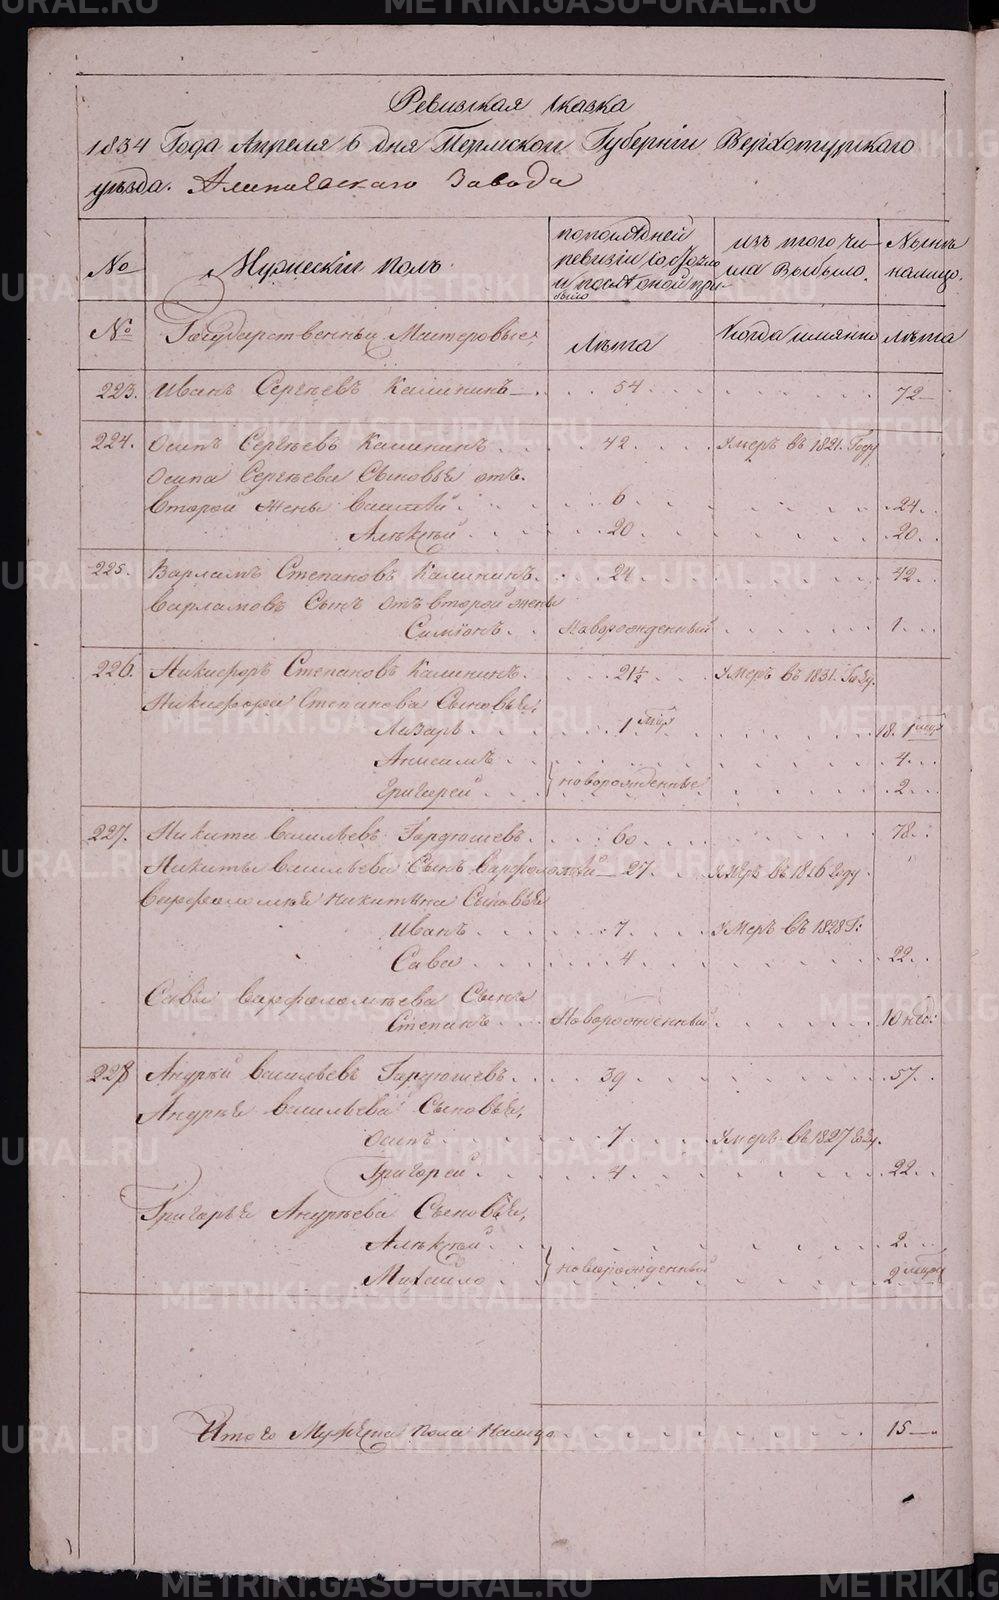 Ревизская сказка
1834 Года Апреля 6 дня Пермской Губернiи Верхотурскаго
уѣзда. Алапаевскаго Завода
№ Мужескiй полъ. по последней ревизiи состояло и после оной прибыло изъ того числа выбыло. Нынѣ налицо.
№ Государственныи Мастеровые: Лѣта Когда имянно лѣта
223. Иванъ Сергѣевъ Калининъ 54 72
224. Осипъ Сергѣевъ Калининъ 42 Умеръ въ 1821. Году
Осипа Сергѣева Сыновья отъ
второй жены Василей 6 24
Алѣксѣй 20 20
225. Варламъ Степановъ Калининъ. 24 42
Варламовъ Сынъ отъ второй жены
Симiонъ. Новорожденный 1
226. Никифоръ Степановъ Калининъ. 21½ Умеръ въ 1831. Году.
Никифора Степанова Сыновья;
Лазарь 1 мѣся 18. 1 мѣся
Анисимъ 4
Григорей новорожденные 2
227. Никита Васильевъ Гардюшевъ 60 78
Никиты Васильева Сынъ Варфоломей 27. Умеръ въ 1826 Году.
Варфоломея Никитина Сыновья
Иванъ 7 Умеръ въ 1828 Г:
Сава 4 22
Савы Варфоломѣева Сынъ
Степанъ Новорожденный 10 нед:
228 Андрѣй Васильевъ Гардюшевъ 39 57
Андрѣя Васильева Сыновья,
Осипъ 7 Умеръ въ 1827 году.
Григорей 4 22
Григорья Андрѣева Сыновья,
Алѣксѣй 2
Михайло новорожденный 2 мѣся
Итого Мужеска пола налицо 15
METRIKI.GASO-URAL.RU